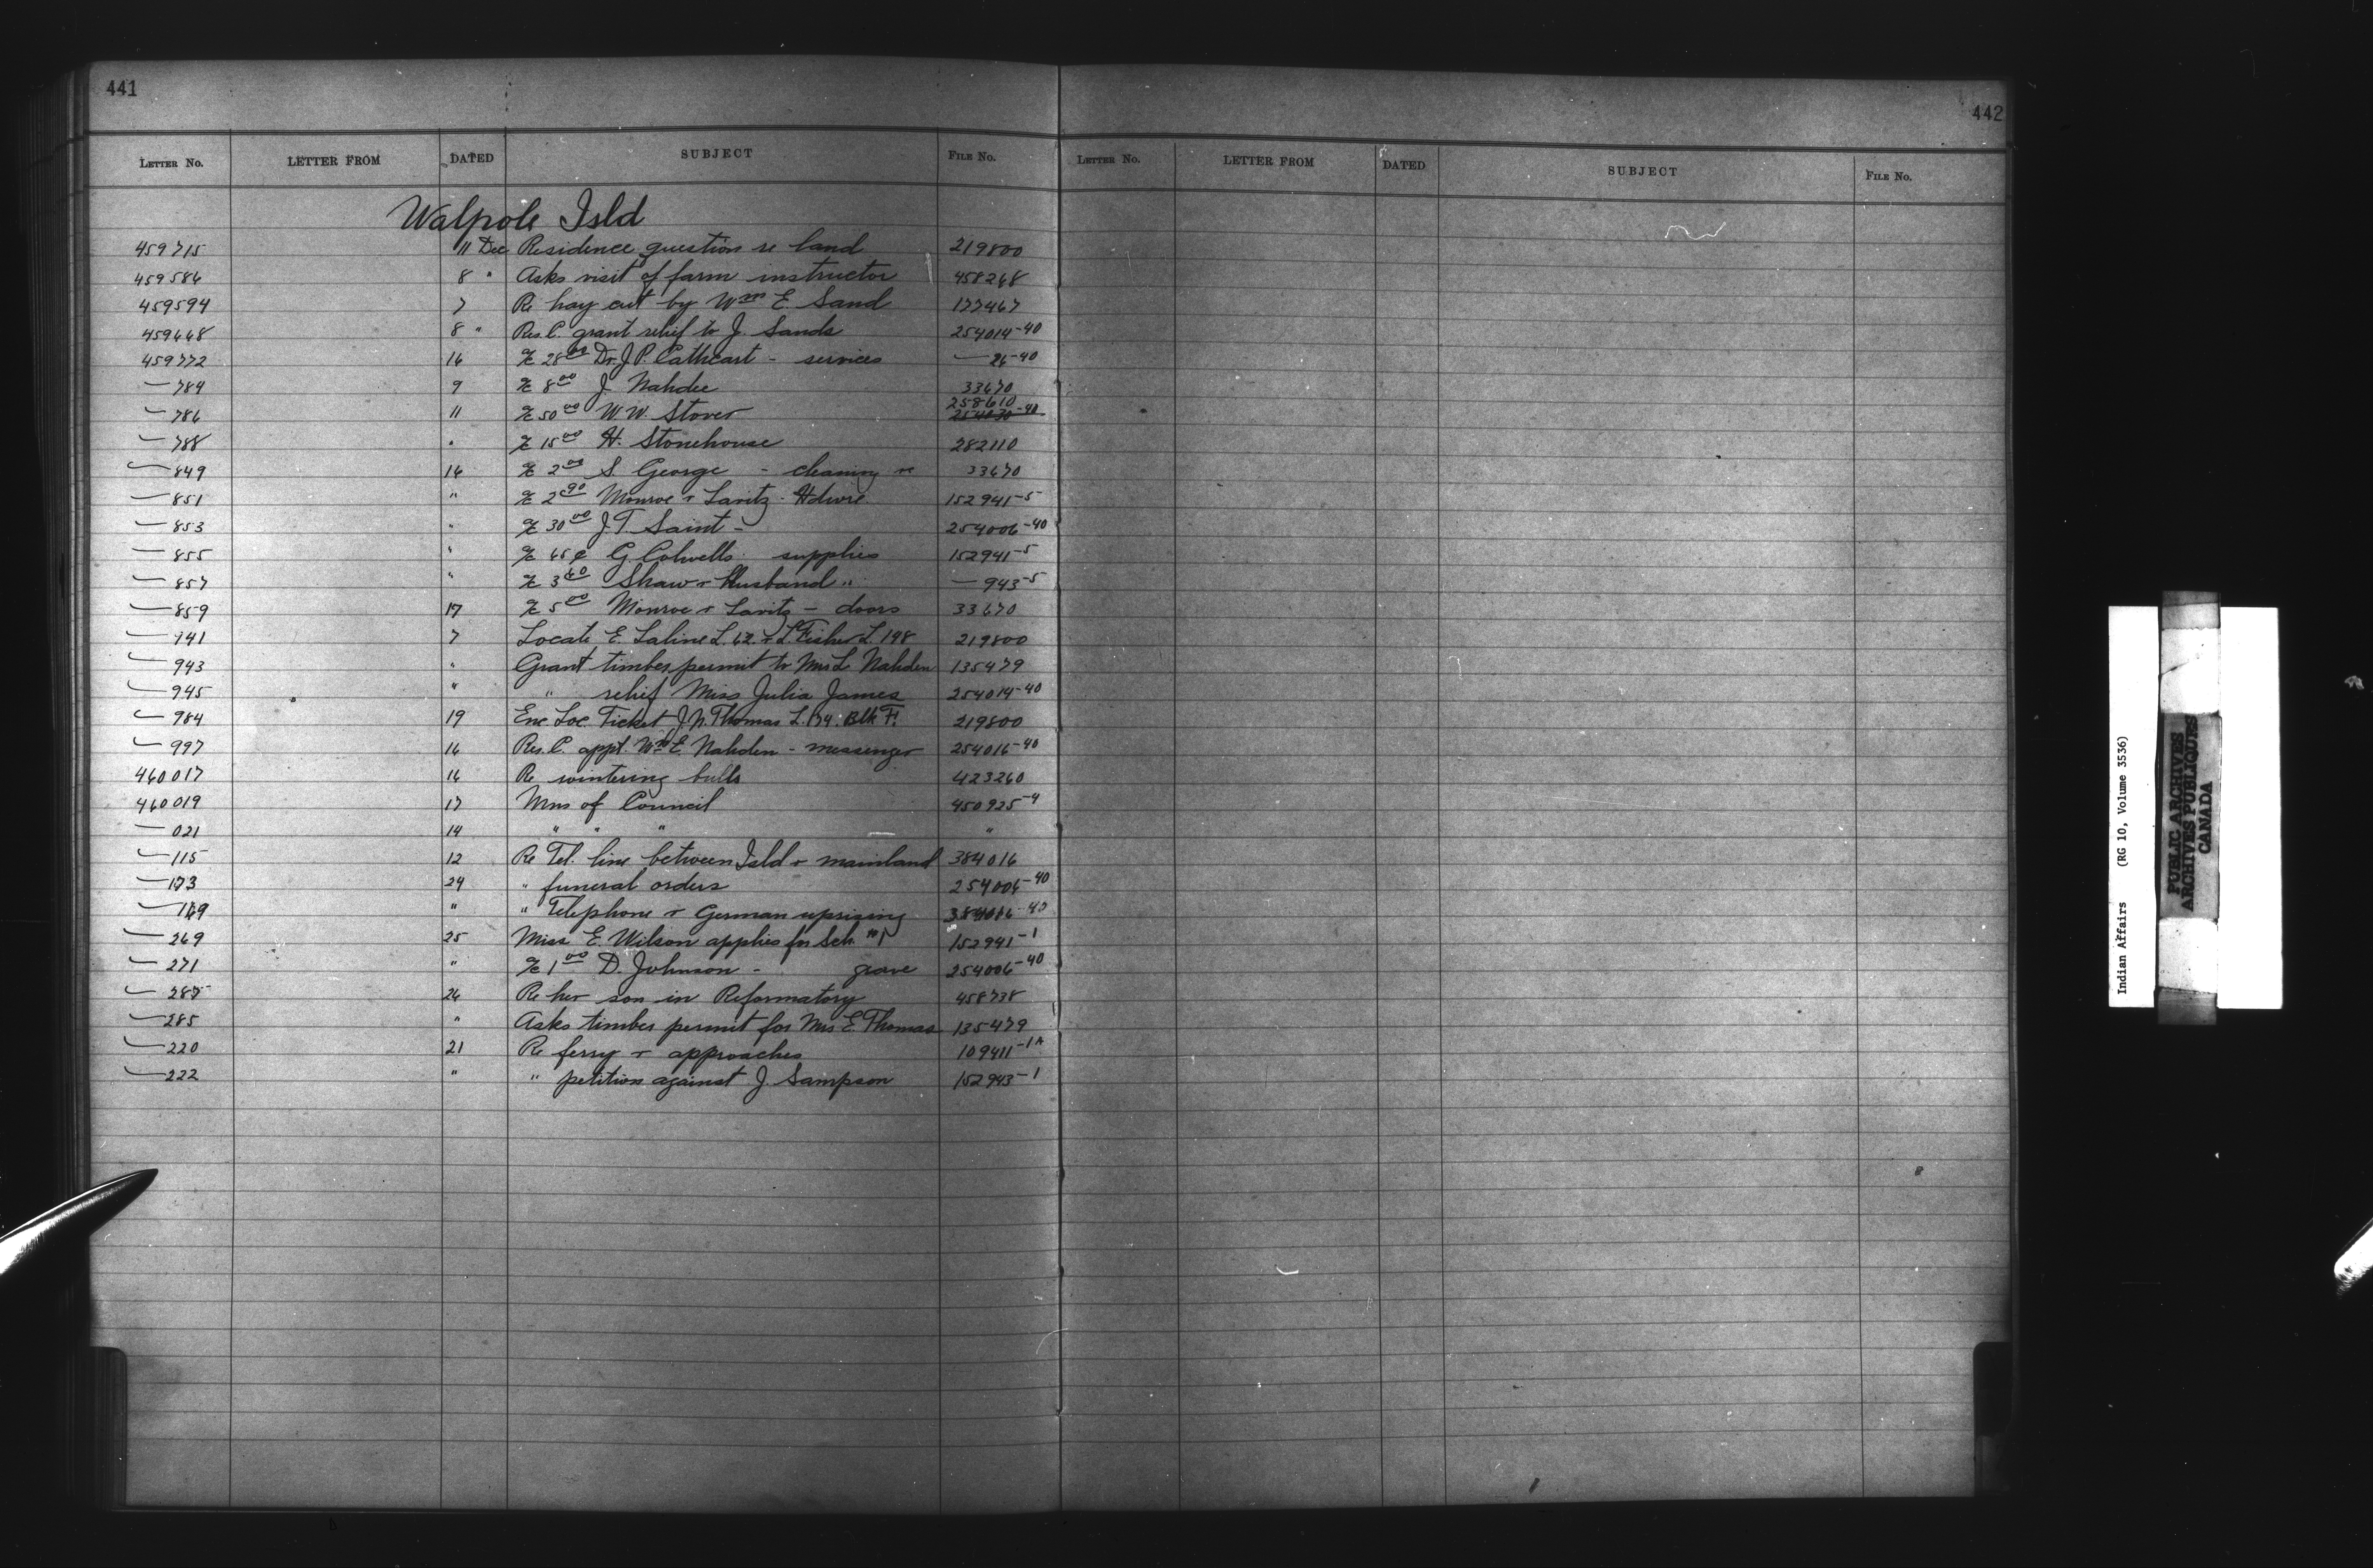 441
LETTER NO. LETTER FROM DATED SUBJECT FILE NO.
Walpole Isld
459715 11 Dec Residence question re land 219800
459586 8 " Asks visit of farm instructor 458268
459594 7 Re hay cut by Wm E. Sand 177467
459668 8 " Res. C. grant relief to J. Sands 254014-40
459772 16 28 00 Dr. J. P. Cathcart - services — 26-40
— 784 9 8 00 J. Nahdee 33670
— 786 11 50 00 W. W. Stover 258610
— 788 " 15 00 H. Stonehouse 282110
— 849 16 2 00 S. George - cleaning 33670
— 851 " 2 90 Monroe + Lavitz - Hdwre 152941-5
— 853 " 30 00 J. T. Saint - 254006-40
— 855 " 65 ¢ G. Colwells. supplies 152941-5
— 857 " 3 60 Shaw + Husband " — 943-5
— 859 17 5 00 Monroe + Lavitz - doors 33670
— 941 7 Locate E. Saline L. 62 + L. Fisher L. 198 219800
— 943 " Grant timber permit to Mrs L. Nahden 135479
— 945 " " relief Miss Julia James 254014-40
— 984 19 Enc Loc. Ticket J. N. Thomas L. 174. Blk F. 219800
— 997 16 Res. C. appt. Wm E. Nahden - messenger 254016-40
460017 16 Re wintering bulls 423260
460019 17 Mns of Council 450925-4
— 021 14 " " " "
— 115 12 Re Tel. line between Isld + mainland 384016
— 173 24 " funeral orders 254006-40
— 169 " " Telephone + German uprising 384016-40
— 269 25 Miss E. Wilson applies for Sch. no 1 152941-1
— 271 " 1 00 D. Johnson - grave 254006-40
— 287 26 Re her son in Reformatory 458738
— 285 " Asks timber permit for Mrs E. Thomas 135479
— 220 21 Re ferry + approaches 109411-1A
— 222 " " petition against J. Sampson 152943-1
442
LETTER NO. LETTER FROM DATED SUBJECT FILE NO.
Indian Affairs (RG 10, Volume 3536)
PUBLIC ARCHIVES
ARCHIVES PUBLIQUES
CANADA